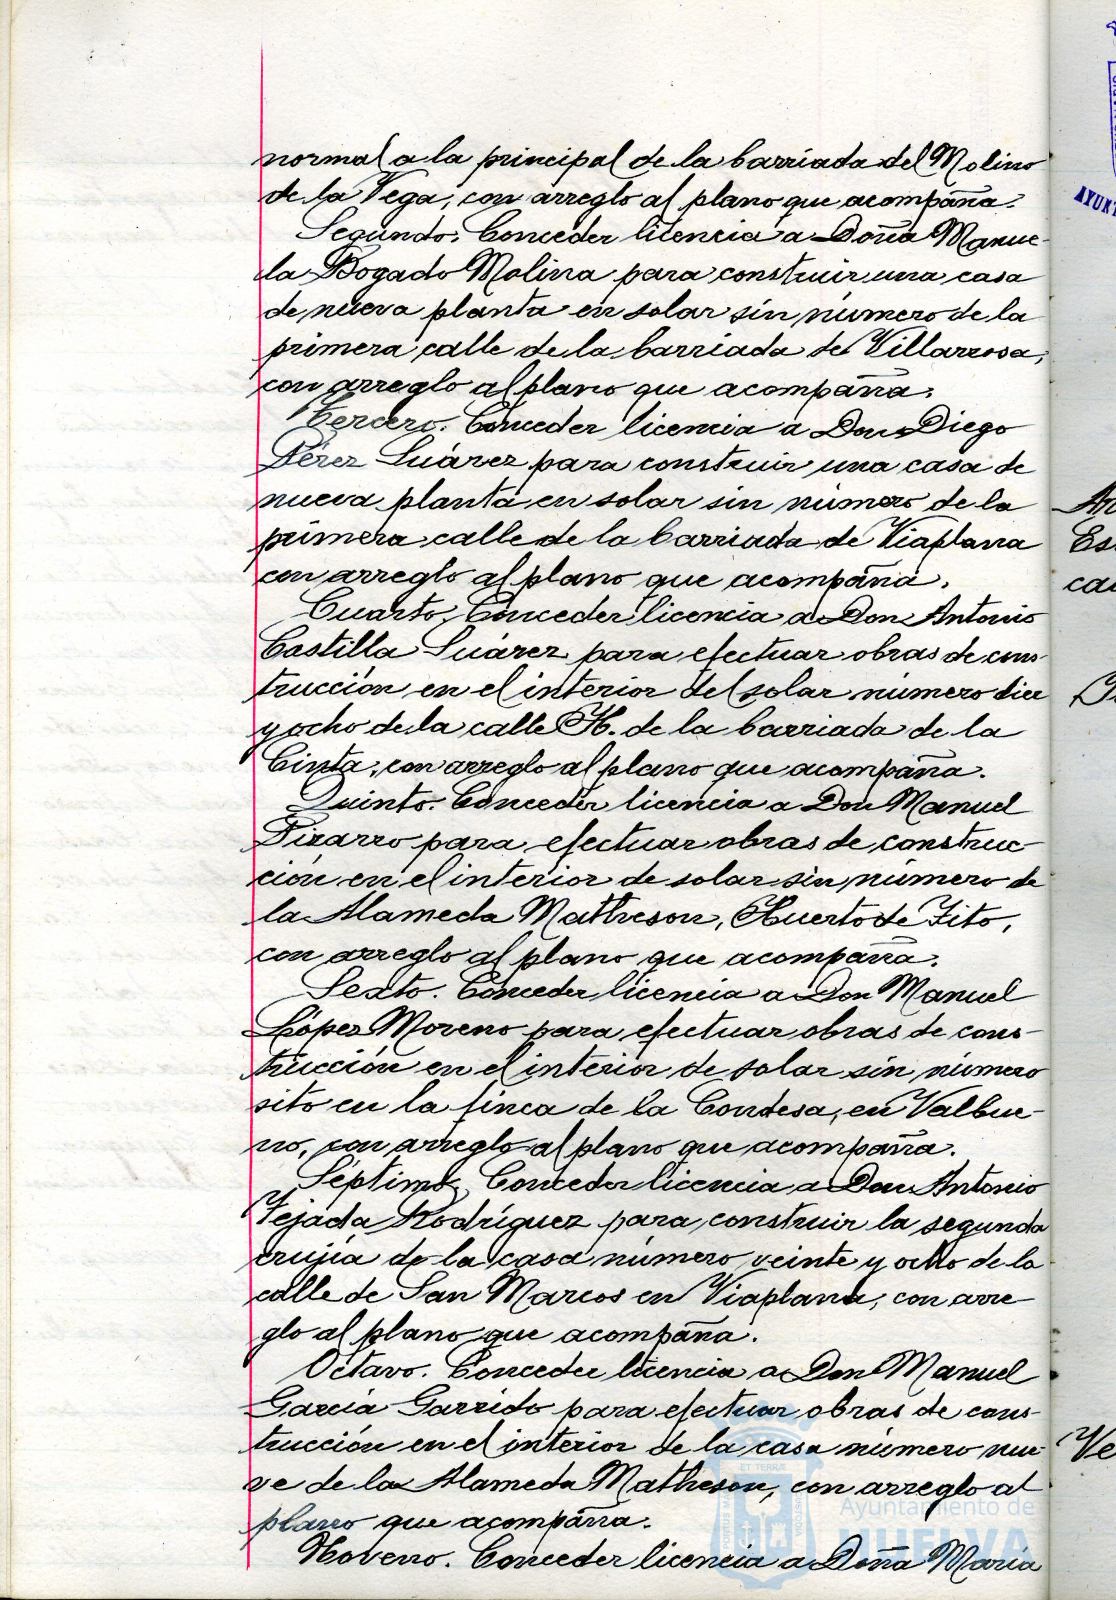 normal a la principal de la barriada del Molino
de la Vega, con arreglo al plano que acompaña.
Segundo. Conceder licencia a Doña Manue-
la Bogado Molina para construir una casa
de nueva planta en solar sin número de la
primera calle de la barriada de Villarrosa,
con arreglo al plano que acompaña.
Tercero. Conceder licencia a Don Diego
Pérez Suárez para construir una casa de
nueva planta en solar sin número de la
primera calle de la barriada de Viaplana
con arreglo al plano que acompaña.
Cuarto. Conceder licencia a Don Antonio
Castilla Suárez para efectuar obras de cons-
trucción en el interior del solar número diez
y ocho de la calle H. de la barriada de la
Cinta, con arreglo al plano que acompaña.
Quinto. Conceder licencia a Don Manuel
Pizarro para efectuar obras de construc-
ción en el interior de solar sin número de
la Alameda Matheson, Huerto de Tito,
con arreglo al plano que acompaña.
Sexto. Conceder licencia a Don Manuel
López Moreno para efectuar obras de cons-
trucción en el interior de solar sin número
sito en la finca de la Condesa, en Valbue-
no, con arreglo al plano que acompaña.
Séptimo. Conceder licencia a Don Antonio
Tejada Rodríguez para construir la segunda
crujía de la casa número veinte y ocho de la
calle de San Marcos en Viaplana, con arre
glo al plano que acompaña.
Octavo. Conceder licencia a Don Manuel
García Garrido para efectuar obras de cons-
trucción en el interior de la casa número nue-
ve de la Alameda Matheson, con arreglo al
plano que acompaña.
Noveno. Conceder licencia a Doña María
Ayuntamiento de
HUELVA